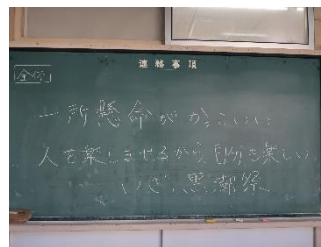 連絡事項
全体
一所懸命がかっこいい!
人を楽しませるから、自分も楽しい。
いざ、黒潮祭